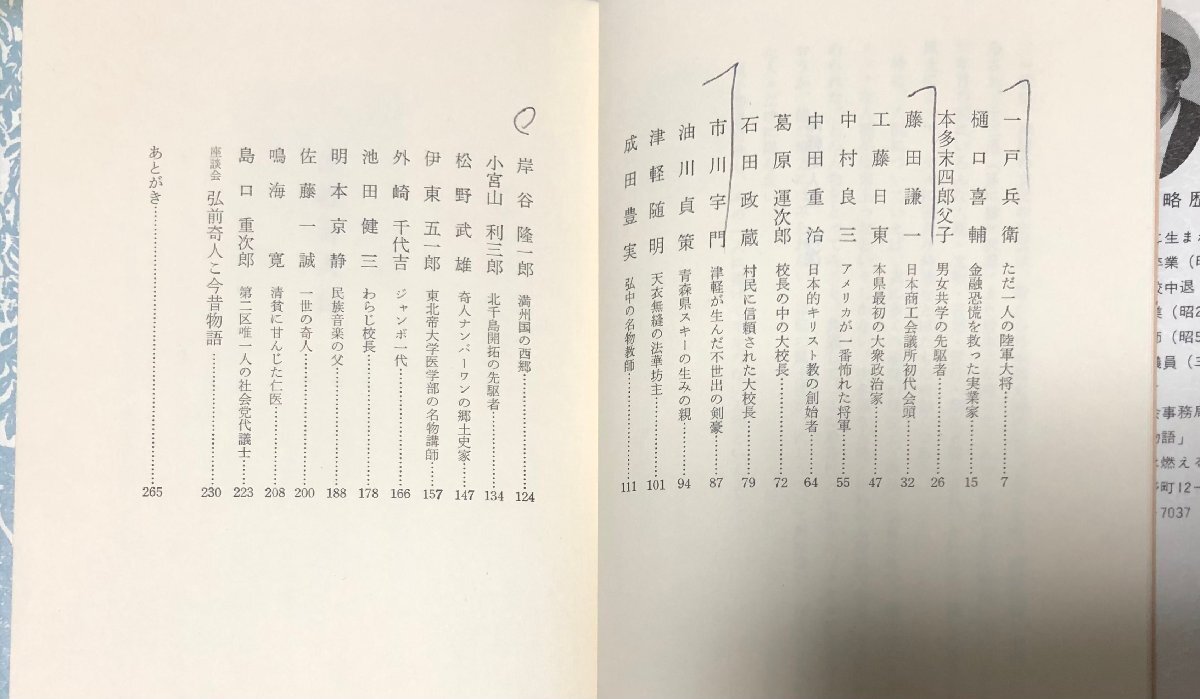 略歴
に生ま
卒業（
校中退
業（昭2
師（昭5
議員（三
会事務局
物語」
は燃える
町12－
7037
一戸兵衛 ただ一人の陸軍大将……7
樋口喜輔 金融恐慌を救った実業家……15
本多末四郎父子 男女共学の先駆者……26
藤田謙一 日本商工会議所初代会頭……32
工藤日東 本県最初の大衆政治家……47
中村良三 アメリカが一番怖れた将軍……55
中田重治 日本的キリスト教の創始者……64
葛原運次郎 校長の中の大校長……72
石田政蔵 村民に信頼された大校長……79
市川宇門 津軽が生んだ不世出の剣豪……87
油川貞策 青森県スキーの生みの親……94
津軽随明 天衣無縫の法華坊主……101
成田豊実 弘中の名物教師……111
岸谷隆一郎 満州国の西郷……124
小宮山利三郎 北千島開拓の先駆者……134
松野武雄 奇人ナンバーワンの郷土史家……147
伊東五一郎 東北帝大学医学部の名物講師……157
外崎千代吉 ジャンボ一代……166
池田健三 わらじ校長……178
明本京静 民族音楽の父……188
佐藤一誠 一世の奇人……200
鳴海寛 清貧に甘んじた仁医……208
島口重次郎 第二区唯一人の社会党代議士……223
座談会 弘前奇人こ今昔物語……230
あとがき……265